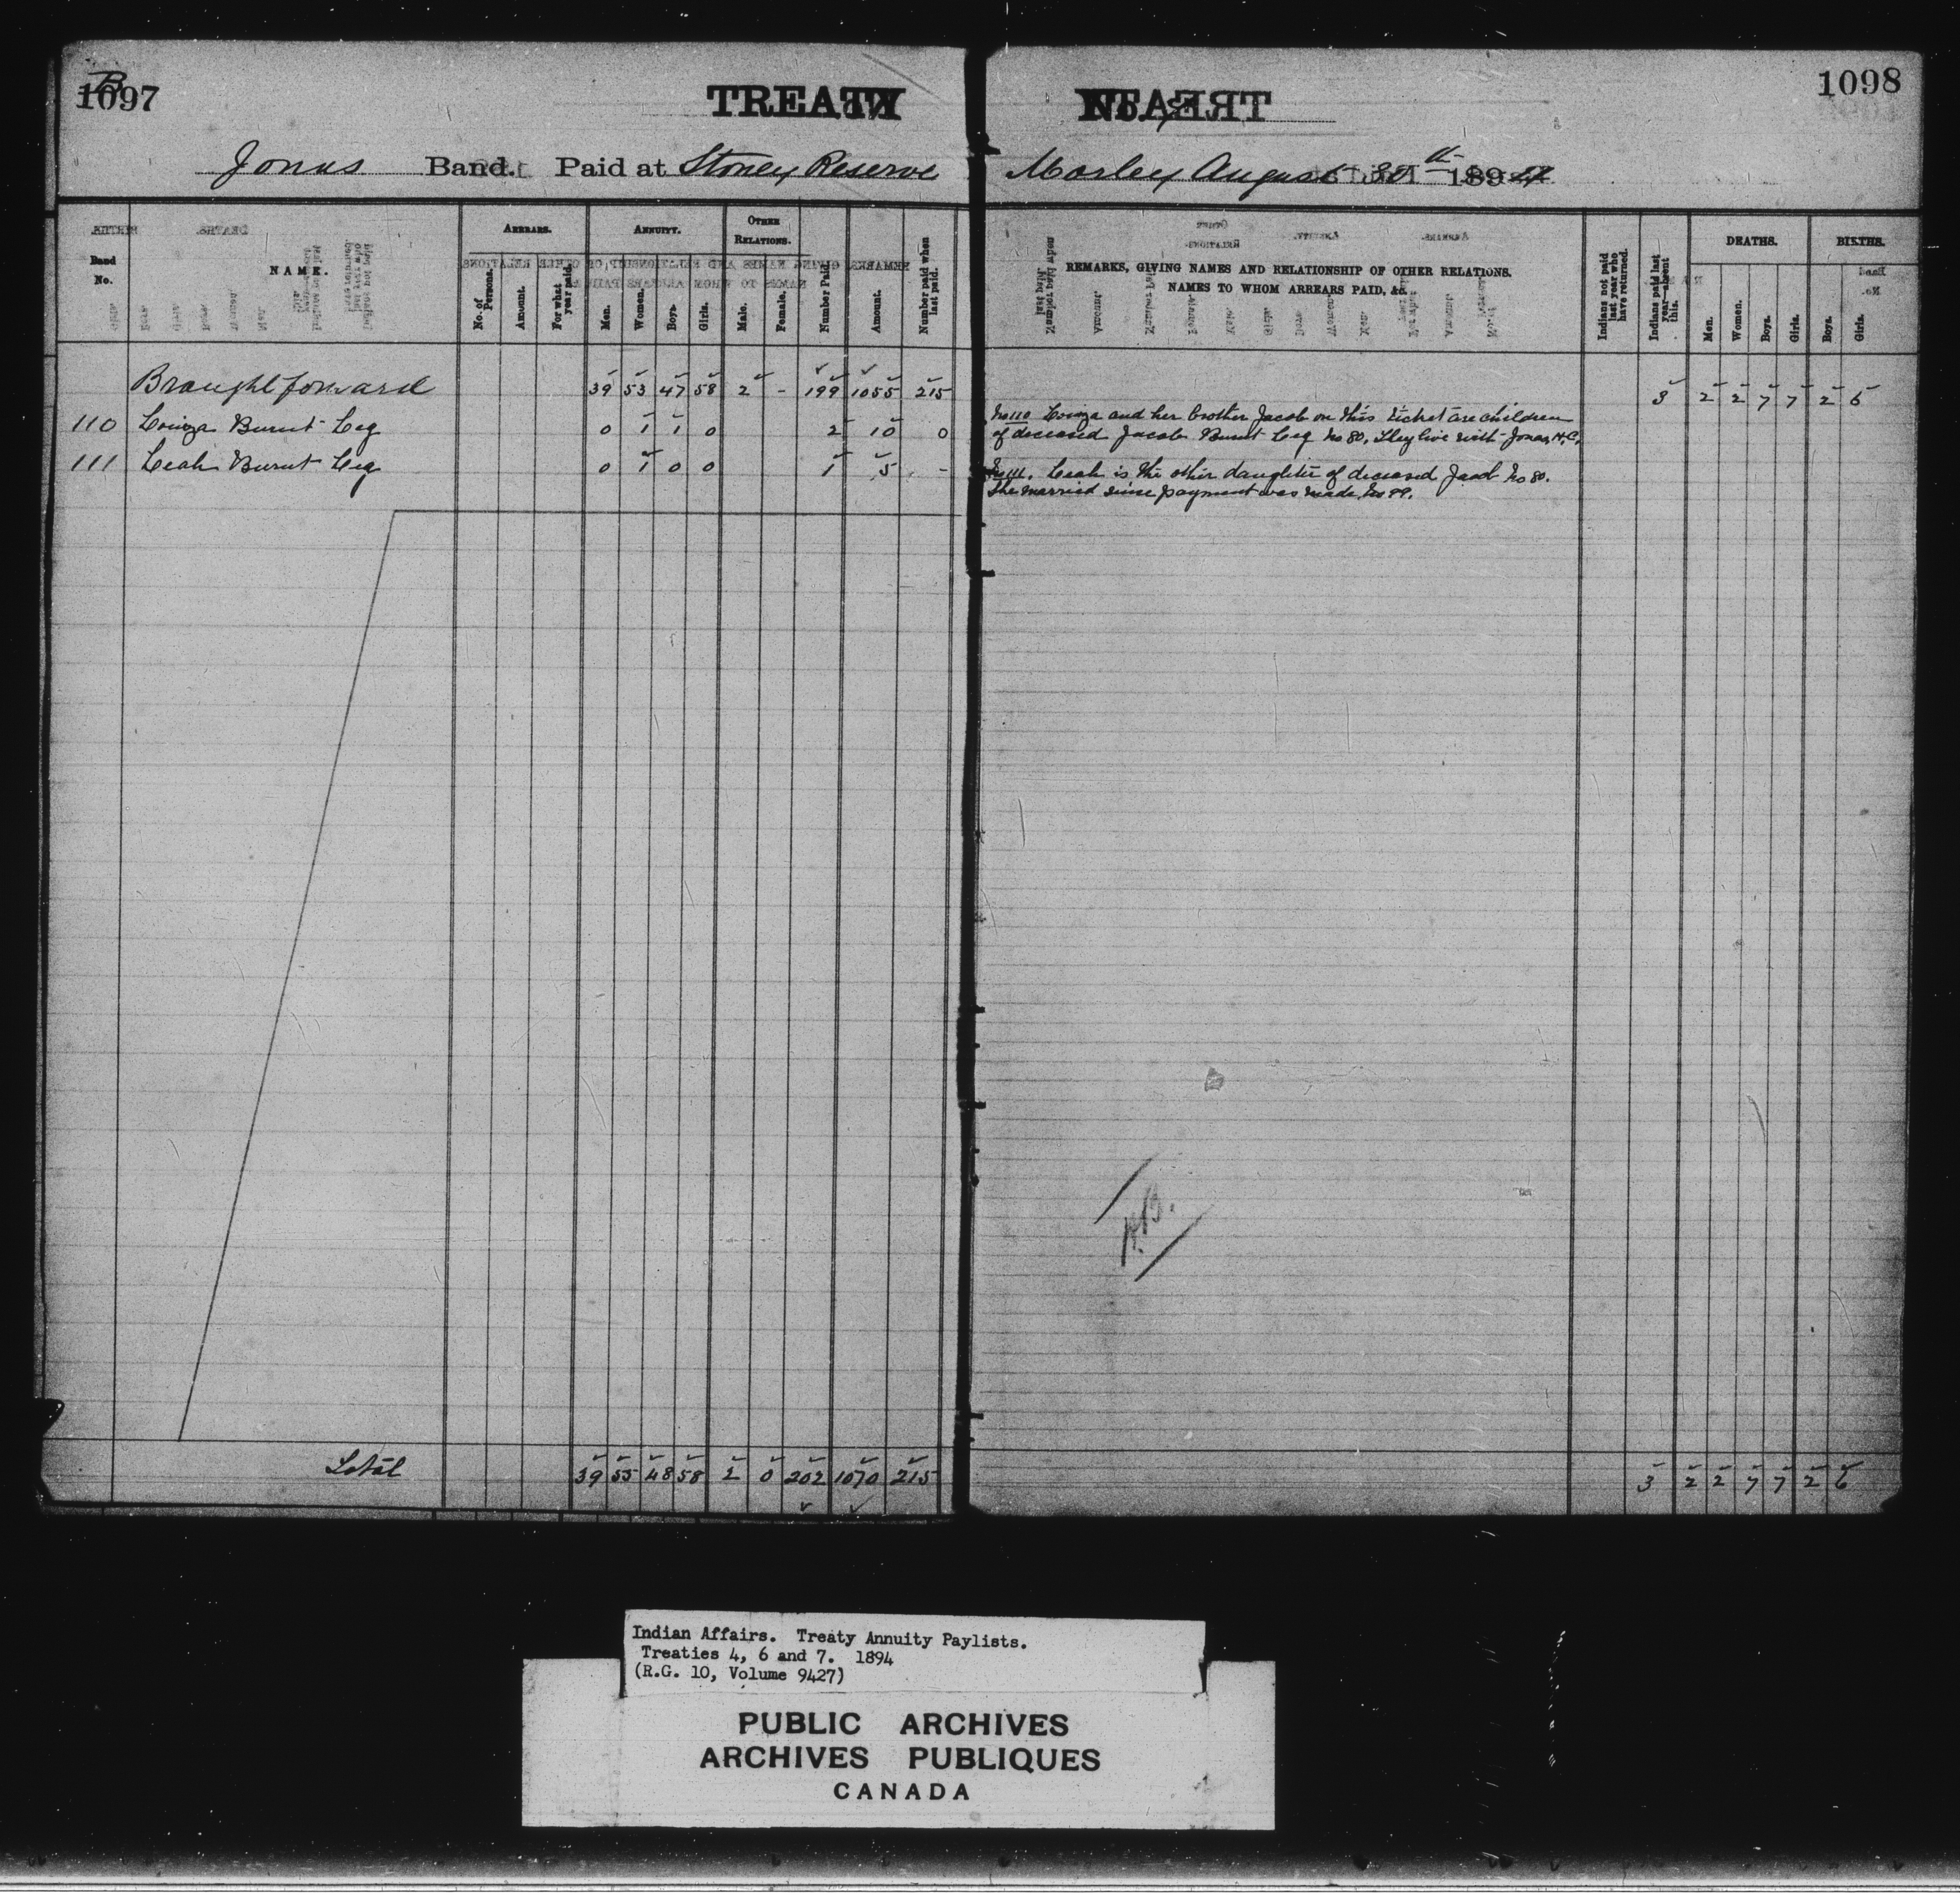 B
1097
TREATY
1098
Jonas Band. Paid at Stoney Reserve
Morley August 30th 1894
Band No.
NAME.
ARREARS.
No. of Persons.
Amount.
For what year paid.
ANNUITY.
Men.
Women.
Boys.
Girls.
OTHER RELATIONS.
Male.
Female.
Number Paid.
Amount.
Number paid when last paid.
REMARKS, GIVING NAMES AND RELATIONSHIP OF OTHER RELATIONS.
NAMES TO WHOM ARREARS PAID, &c.
Indians not paid last year who have returned.
Indians paid last year—absent this.
DEATHS.
Men.
Women.
Boys.
Girls.
BIRTHS.
Boys.
Girls.
Brought forward 39 53 47 58 2 - 199 1055 215 3 2 2 7 7 2 6
110 Louiza Burnt Leg 0 1 1 0 2 10 0
No 110 Louiza and her brother Jacob on this ticket are children
of deceased Jacob Burnt Leg No 80. They live with Jonas, H.C.
111 Leah Burnt Leg 0 1 0 0 1 5 -
No 111. Leah is the other daughter of deceased Jacob No 80.
She married since payment was made, No 99.
Total 39 55 48 58 2 0 202 1070 215 3 2 2 7 7 2 6
Indian Affairs. Treaty Annuity Paylists.
Treaties 4, 6 and 7. 1894
(R.G. 10, Volume 9427)
PUBLIC ARCHIVES
ARCHIVES PUBLIQUES
CANADA